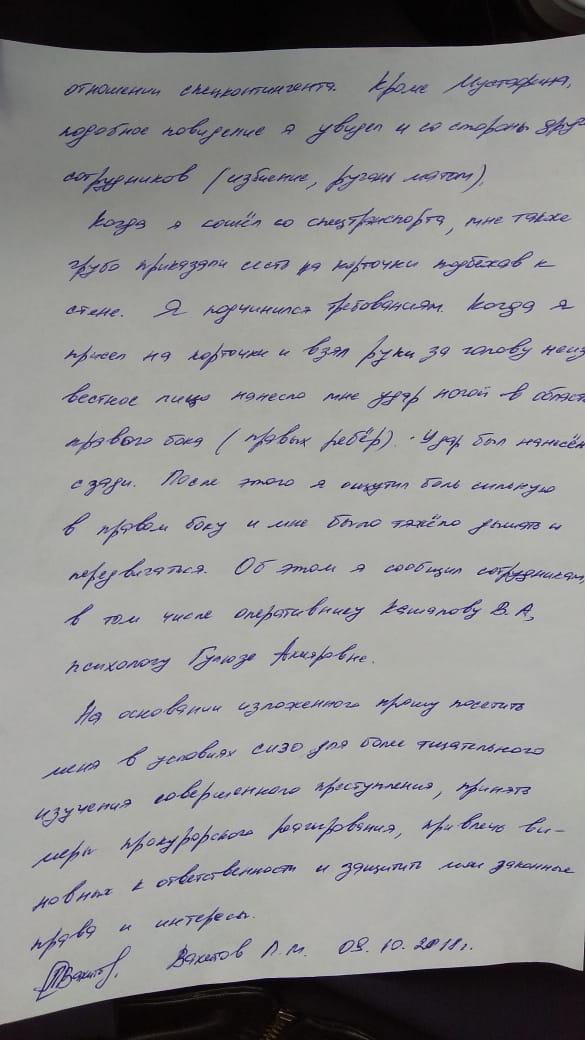 отношении спецконтингента. Кроме Мустафина,
подобное повидение я увидел и со стороны друг
сотрудников (избиение, ругань матом).
Когда я сошёл со спецтранспорта, мне также
грубо приказали сесть на корточки подбежав к
стене. Я подчинился требованиям. Когда я
присел на корточки и взял руки за голову неиз
вестное лицо нанесло мне удар ногой в област
правого бока (правых ребёр). Удар был нанесён
сзади. После этого я ощутил боль сильную
в правом боку и мне было тяжело дышать и
передвигаться. Об этом я сообщил сотрудникам,
в том числе оперативнику Кашапову В.А,
психологу Гулюзе
На основании изложенного прошу посетить
меня в условиях сизо для более тщательного
изучения совершенного преступления, принять
меры прокурорского реагирования, привлечь ви-
новных к ответственности и защитить мои законные
права и интересы.
Вахитов Л.М. 09.10.2018г.